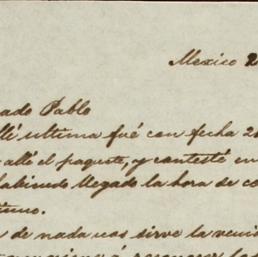 Mexico 2
ado Pablo
ultima fué con fecha 2
allé el paquete, y contesté en
habiendo llegado la hora de co
de nada nos sirve la